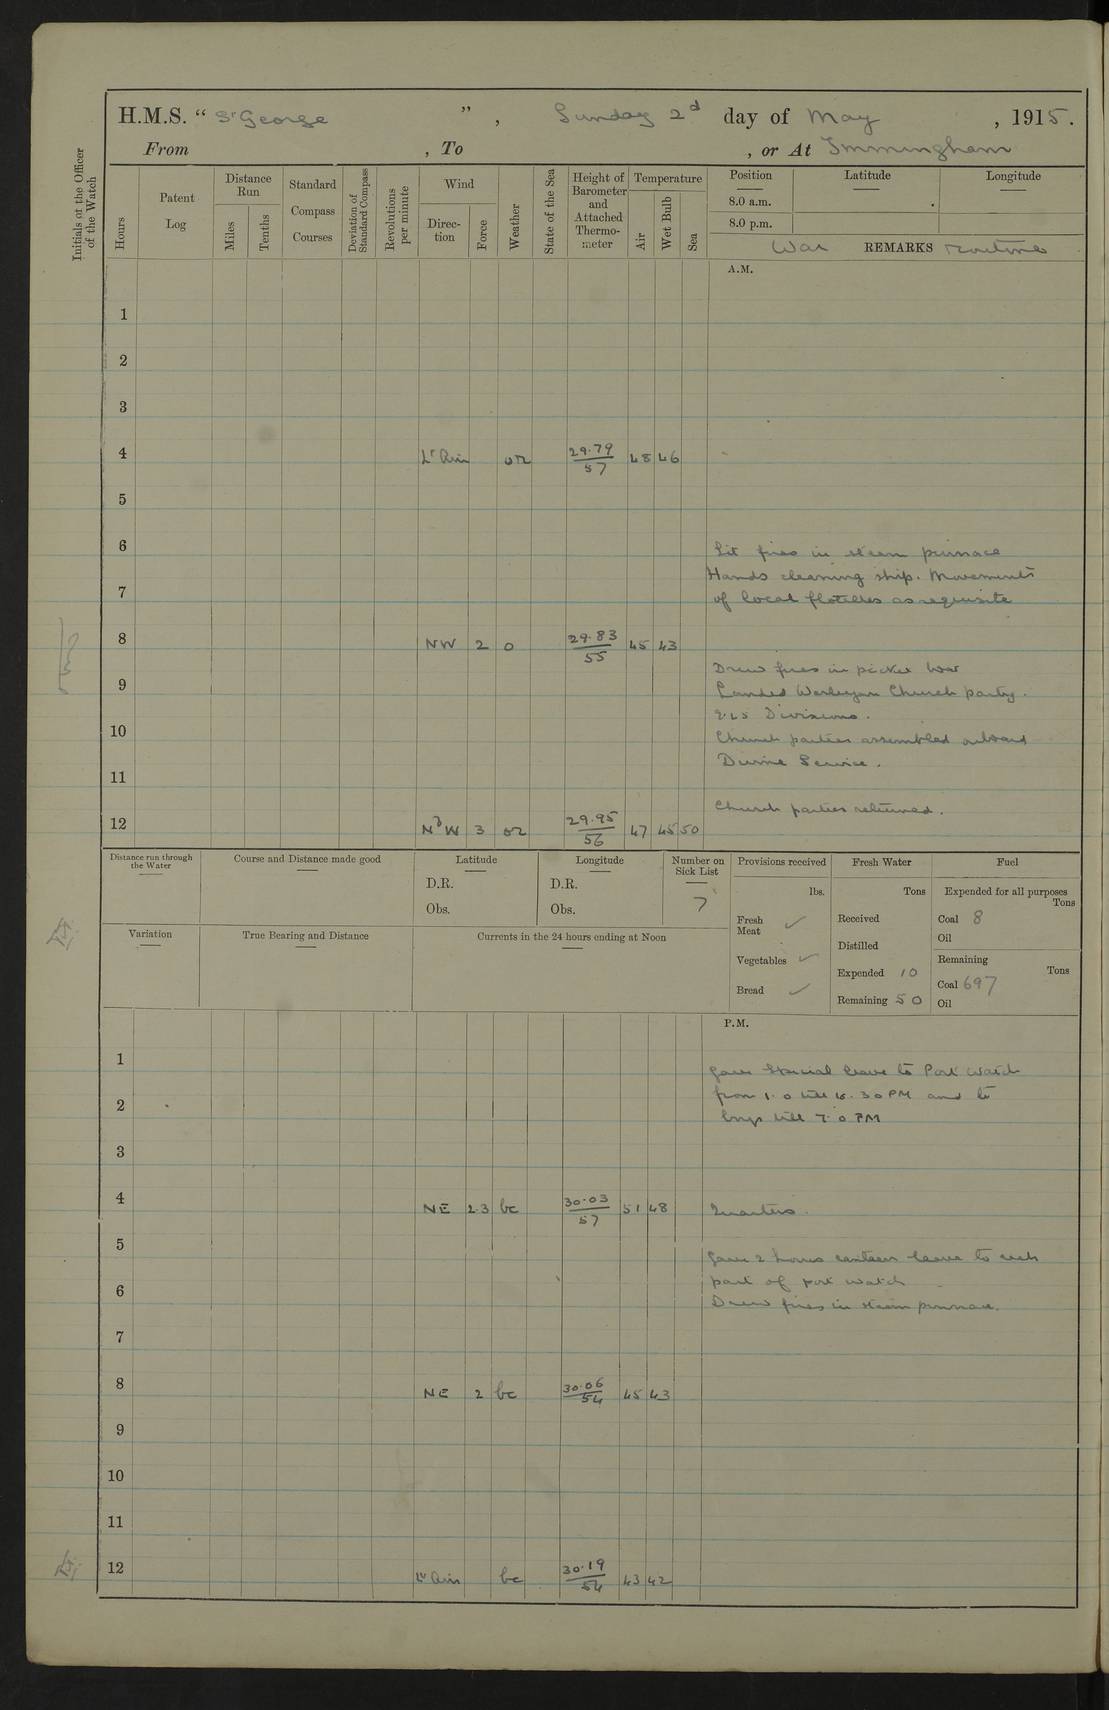 H.M.S. “ St George ” , Sunday 2d day of May , 1915.
From , To , or At Immingham
Initials of the Officer of the Watch
Hours
Patent Log
Distance Run
Miles
Tenths
Standard Compass Courses
Deviation of Standard Compass
Revolutions per minute
Wind
Direc-tion
Force
Weather
State of the Sea
Height of Barometer and Attached Thermo-meter
Temperature
Air
Wet Bulb
Sea
Position Latitude Longitude
8.0 a.m.
8.0 p.m.
War REMARKS routine
A.M.
1
2
3
4 Lt Airs or 29.79 57 48 46
5
6 Lit fires in steam pinnace
Hands cleaning ship. Movements
7 of local flotillas as requisite
8 NW 2 o 29.83 55 45 43
Drew fires in picket boat
9 Landed Wesleyan Church party.
9.25 Divisions.
10 Church parties assembled onboard
Divine Service.
11
Church parties returned.
12 NbW 3 or 29.95 56 47 45 50
Distance run through the Water
Course and Distance made good
Latitude
D.R.
Obs.
Longitude
D.R.
Obs.
Number on Sick List
7
Provisions received
lbs.
Fresh Meat ✓
Vegetables ✓
Bread ✓
Fresh Water
Tons
Received
Distilled
Expended 10
Remaining 50
Fuel
Expended for all purposes
Tons
Coal 8
Oil
Remaining
Tons
Coal 697
Oil
Variation
True Bearing and Distance
Currents in the 24 hours ending at Noon
P.M.
1 Gave special leave to Port Watch
2 from 1.0 till 10.30 PM and to
boys till 7.0 PM
3
4 NE 2.3 bc 30.03 57 51 48 Quarters.
5 Gave 2 hours canteen leave to each
part of port watch
6 Drew fires in steam pinnace.
7
8 NE 2 bc 30.06 54 45 43
9
10
11
12 Lt Airs bc 30.19 54 43 42